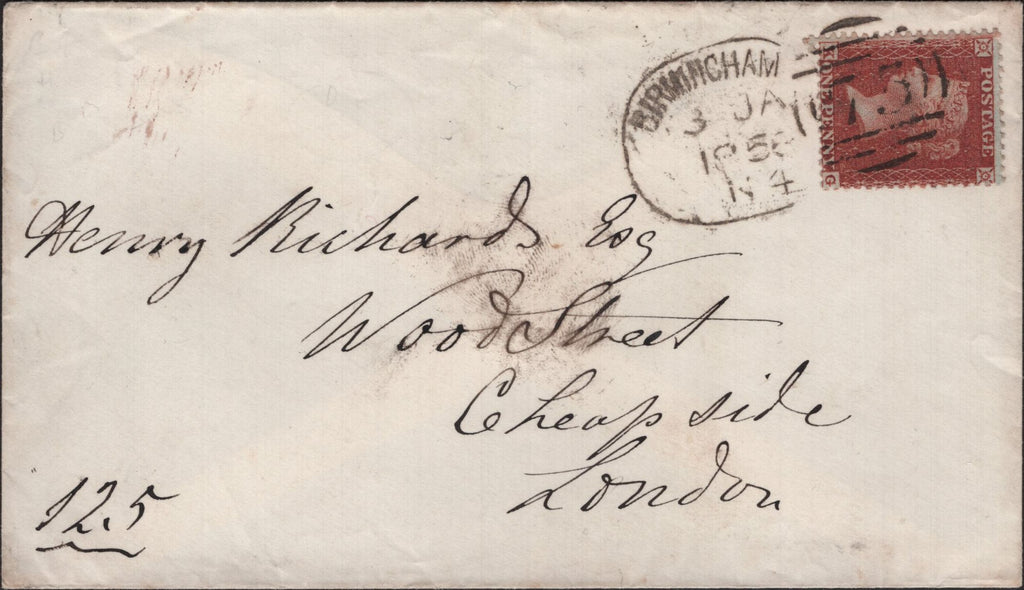 BIRMINGHAM
3 JA
1858
N 4
POSTAGE
ONE PENNY
G
Henry Richards Esq
Wood Street
Cheapside
London
12.5